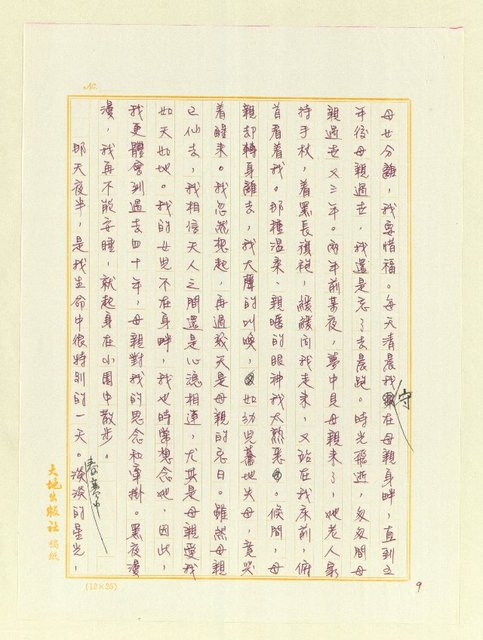 No.
母女分離，我要惜福。每天清晨我守在母親身畔，直到五
年後母親過世，我還是忘了去晨跑。時光飛逝，匆匆間母
親過世又三年。兩年前某夜，夢中見母親來了，她老人家
持手杖，着黑長旗袍，緩緩向我走來，又站在我床前，俯
首看着我。那種溫柔、親暱的眼神我太熟悉。倏間，母
親却轉身離去，我大聲的叫喚，如幼兒驀地失母，竟哭
着醒來。我忽然想起，再過幾天是母親的忌日。雖然母親
已仙去，我相信天人之間還是心魂相連，尤其是母親愛我
如天如地。我的女兒不在身畔，我也時常想念她，因此，
我更體會到過去四十年，母親對我的思念和牽掛。黑夜漫
漫，我再不能安睡，就起身在小園中散步。
那天夜半，是我生命中很特別的一天。淡淡的星光，
春寒中
大地出版社 稿紙
(12×25)
9